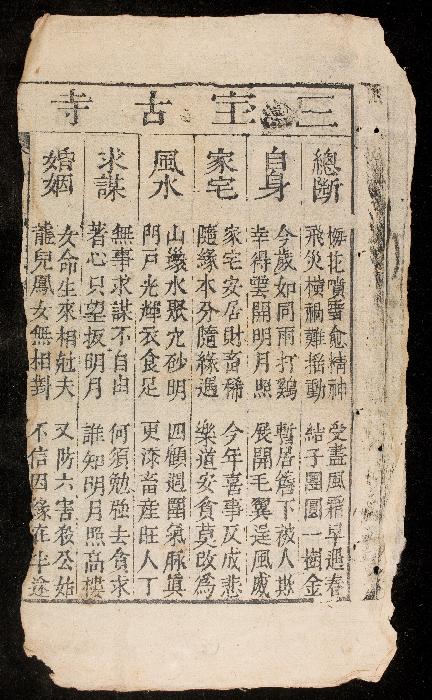 三宝古寺
總斷
梅花噴雪愈精神 受盡風霜早遇春
飛災橫禍難揺動 結子團圓一樹金
自身
今歲如同雨打鷄 暫居簷下被人欺
幸得雲開明月照 展開毛翼逞風威
家宅
家宅安居財畜稀 今年喜事反成悲
隨緣本分隨緣過 樂道安貧莫改為
風水
山環水聚穴砂明 四顧週圍氣脉真
門戸光輝衣食足 更添畜産旺人丁
求謀
無事求謀不自由 何須勉強去貪求
著心只望扳明月 誰知明月照高樓
婚姻
女命生來相尅夫 又防六害殺公姑
龍兒鳳女無相對 不信因緣在半途